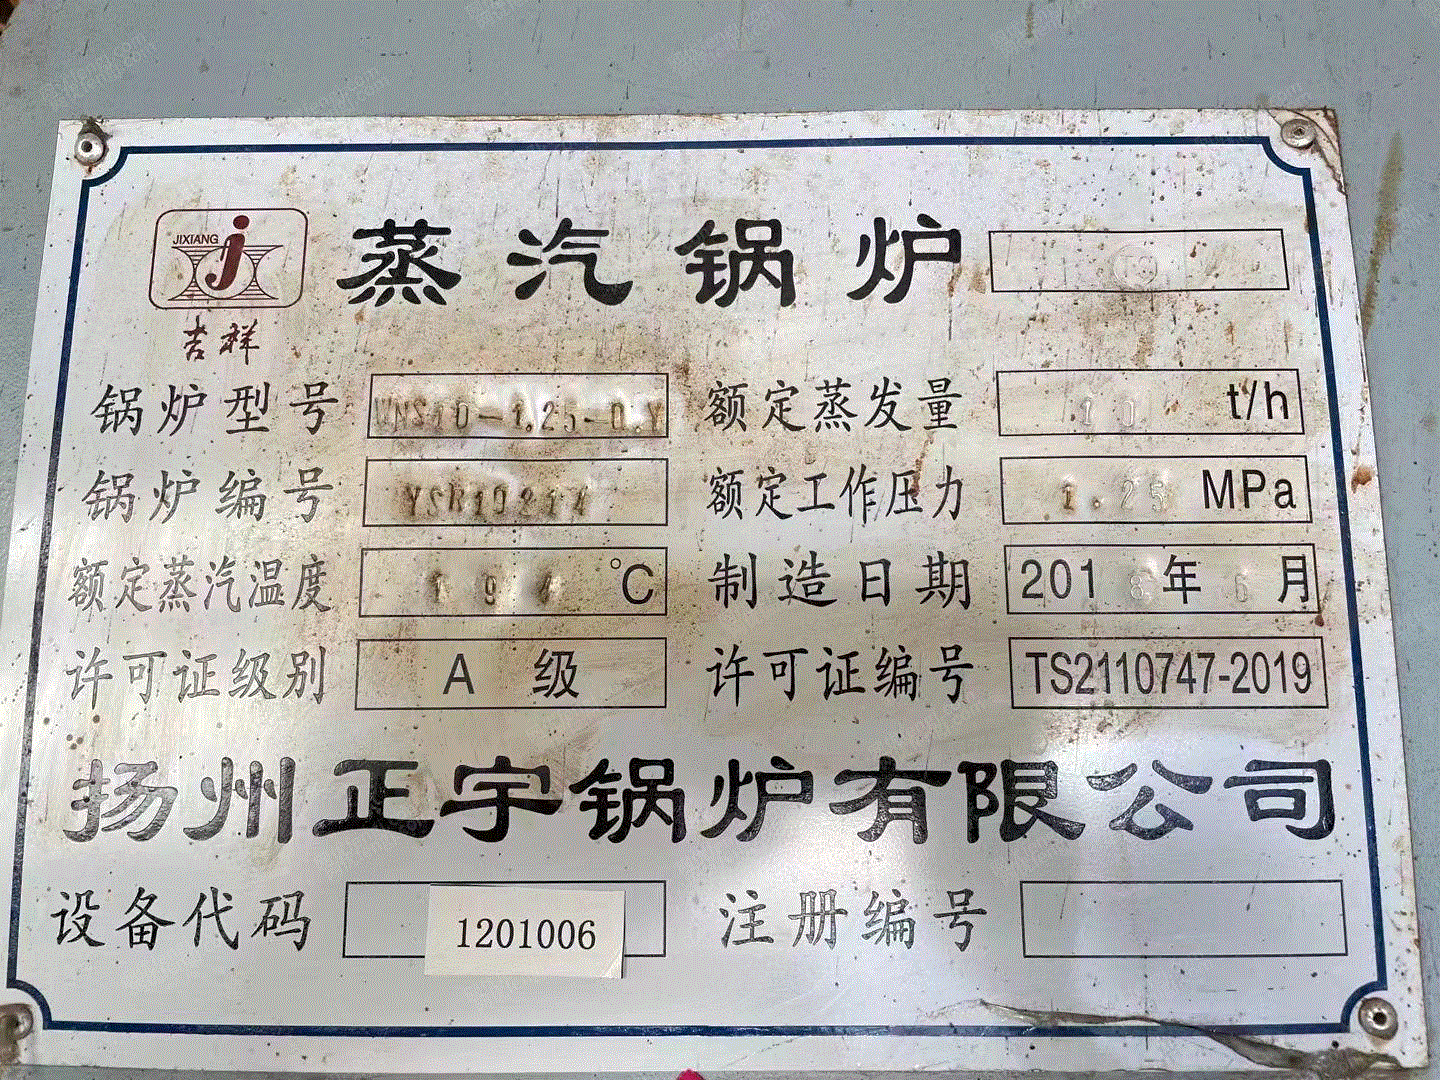 JIXIANG
吉祥
蒸汽锅炉
锅炉型号 WNS10-1.25-Q.Y 额定蒸发量 10 t/h
锅炉编号 额定工作压力 1.25 MPa
额定蒸汽温度 194 ℃ 制造日期 2018年6月
许可证级别 A 级 许可证编号 TS2110747-2019
扬州正宇锅炉有限公司
设备代码 1201006 注册编号